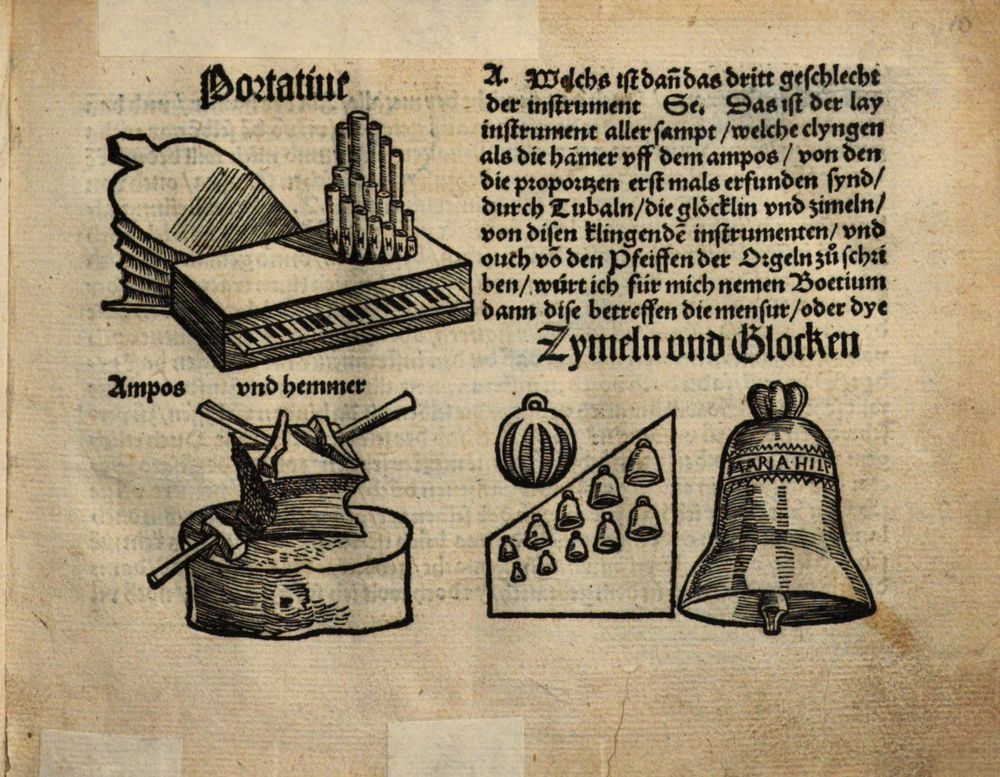 Portatiue
A. Welchs ist dañ das dritt geschlecht
der instrument Se. Das ist der lay
instrument aller sampt / welche clyngen
als die hãmer vff dem ampos / von den
die proportzen erst mals erfunden synd /
durch Tubaln / die glöcklin vnd zimeln /
von disen klingendẽ instrumenten / vnd
ouch võ den Pfeiffen der Orgeln zů schri
ben / würt ich für mich nemen Boetium
dann dise betreffen die mensur / oder dye
Zymeln vnd Glocken
Ampos vnd hemmer
MARIA HILF